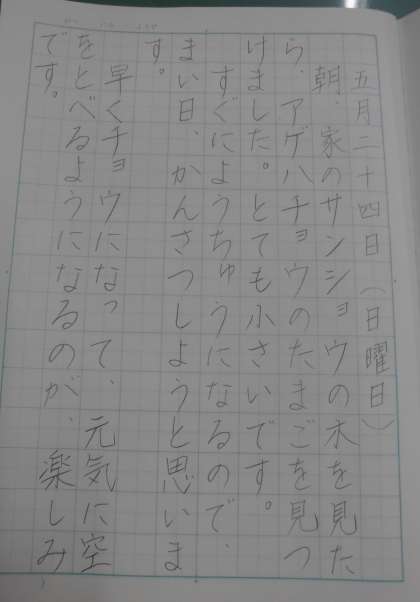 五月二十四日（日曜日）
朝、家のサンショウの木を見た
ら、アゲハチョウのたまごを見つ
けました。とても小さいです。
すぐによウちゅうになるので、
まい日、かんさつしようと思いま
す。
早くチョウになって、元気に空
をとべるようになるのが、楽しみ
です。